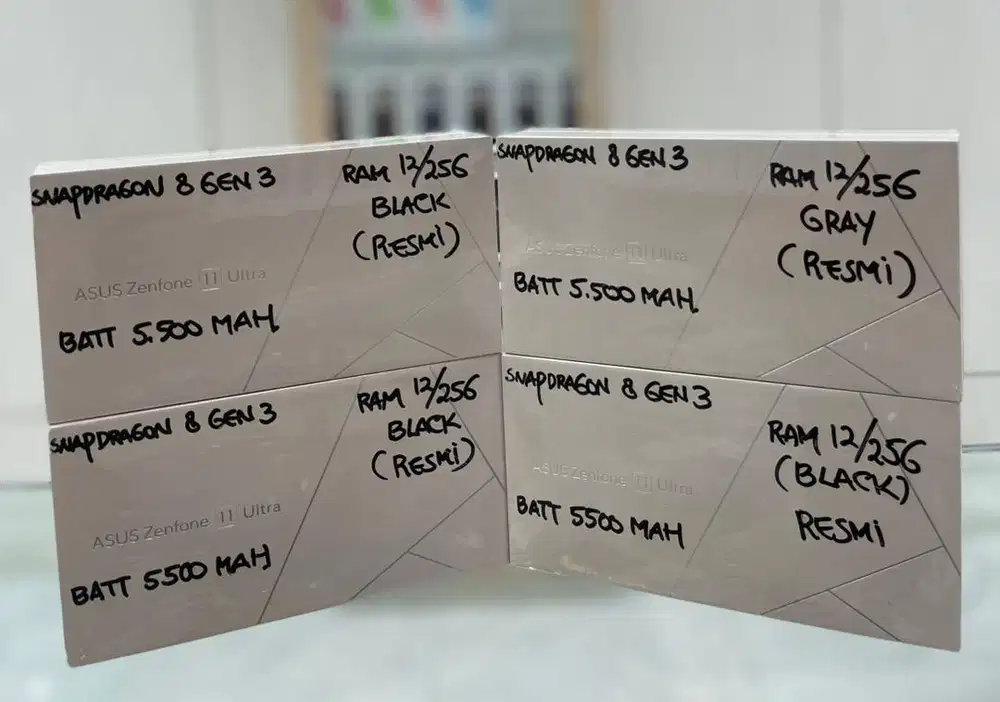 SNAPDRAGON 8 GEN 3
RAM 12/256
BLACK
(RESMi)
ASUS Zenfone 11 Ultra
BATT 5.500 MAH.
SNAPDRAGON 8 GEN 3
RAM 12/256
GRAY
(RESMi)
ASUS Zenfone 11 Ultra
BATT 5.500 MAH.
SNAPDRAGON 8 GEN 3
RAM 12/256
BLACK
(RESMi)
ASUS Zenfone 11 Ultra
BATT 5500 MAH
SNAPDRAGON 8 GEN 3
RAM 12/256
(BLACK)
RESMi
ASUS Zenfone 11 Ultra
BATT 5500 MAH